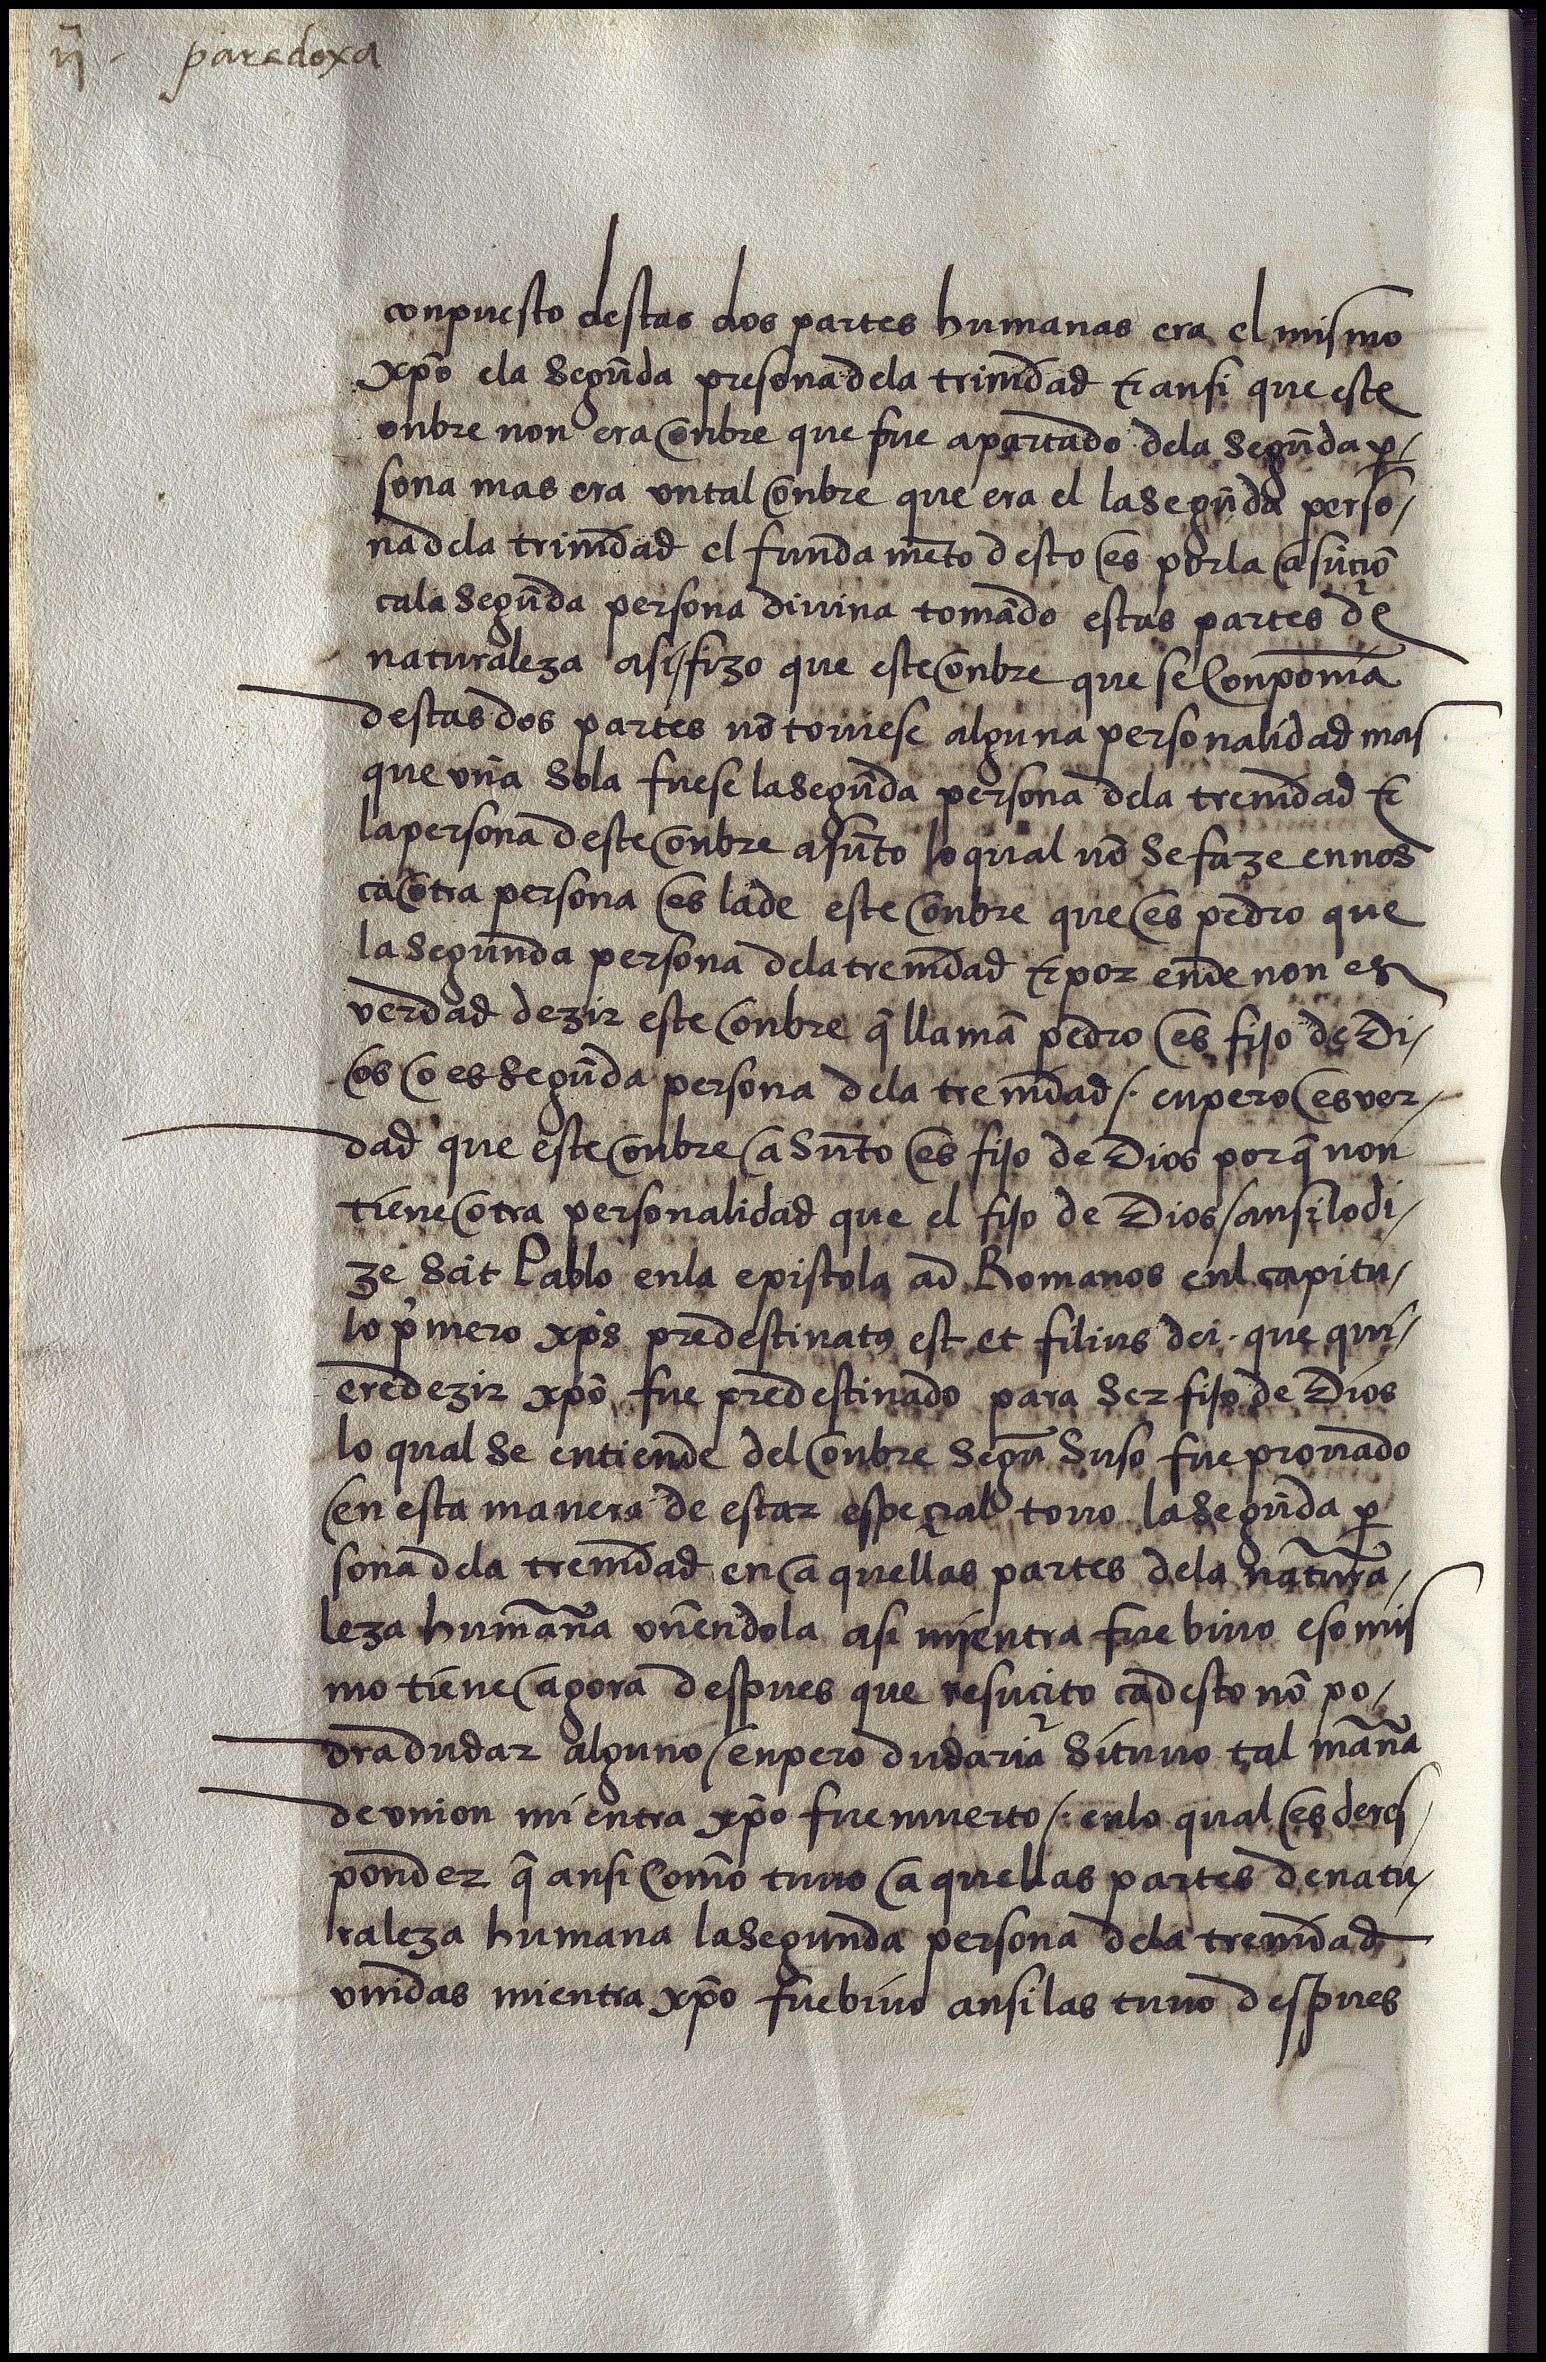 ij - paradoxa
conpuesto destas dos partes humanas era el mismo
xp̄o e la segũda presona dela trinidad & ansi que este
onbre non era onbre que fue apartado dela segũda per/
sona mas era un tal onbre que era el la segũda perso/
na dela trinidad el fundamẽto desto es por la asũciõ
ca la segũda persona diuina tomãdo estas partes de
naturaleza asi fizo que este onbre que se conponia
destas dos partes nõ touiese alguna personalidad mas
que una sola fuese la segũda persona dela trenidad &
la persona deste onbre asũto lo qual nõ se faze en nos
ca otra persona es la de este onbre que es pedro que
la segunda persona dela trenidad & por ende non es
verdad dezir este onbre q̃ llamã pedro es fijo de Di/
os o es segũda persona dela trenidad /. enpero es ver/
dad que este onbre asũto es fijo de Dios por q̃ non
tiene otra personalidad que el fijo de Dios / ansi lo di/
ze sãt Pablo en la epistola ad Romanos enl capitu/
lo p̃mero xp̄s predestinatꝯ est et filius dei. que qui/
ere dezir xp̄o fue predestinado para ser fijo de Dios
lo qual se entiende del onbre segũ suso fue prouado
en esta manera de estar espeçial touo la segũda per
sona dela trenidad en aquellas partes dela natura/
leza humana uniendola asi mientra fue biuo eso mis
mo tiene agora despues que resucito ca desto nõ po/
dra dudar alguno / enpero dudaria si tuuo tal mañã
de union mientra xp̄o fue muerto /. en lo qual es de res/
ponder q̃ ansi como tuuo aquellas partes de natu/
raleza humana la segunda persona dela trenidad
unidas mientra xp̄o fue biuo ansi las tuuo despues